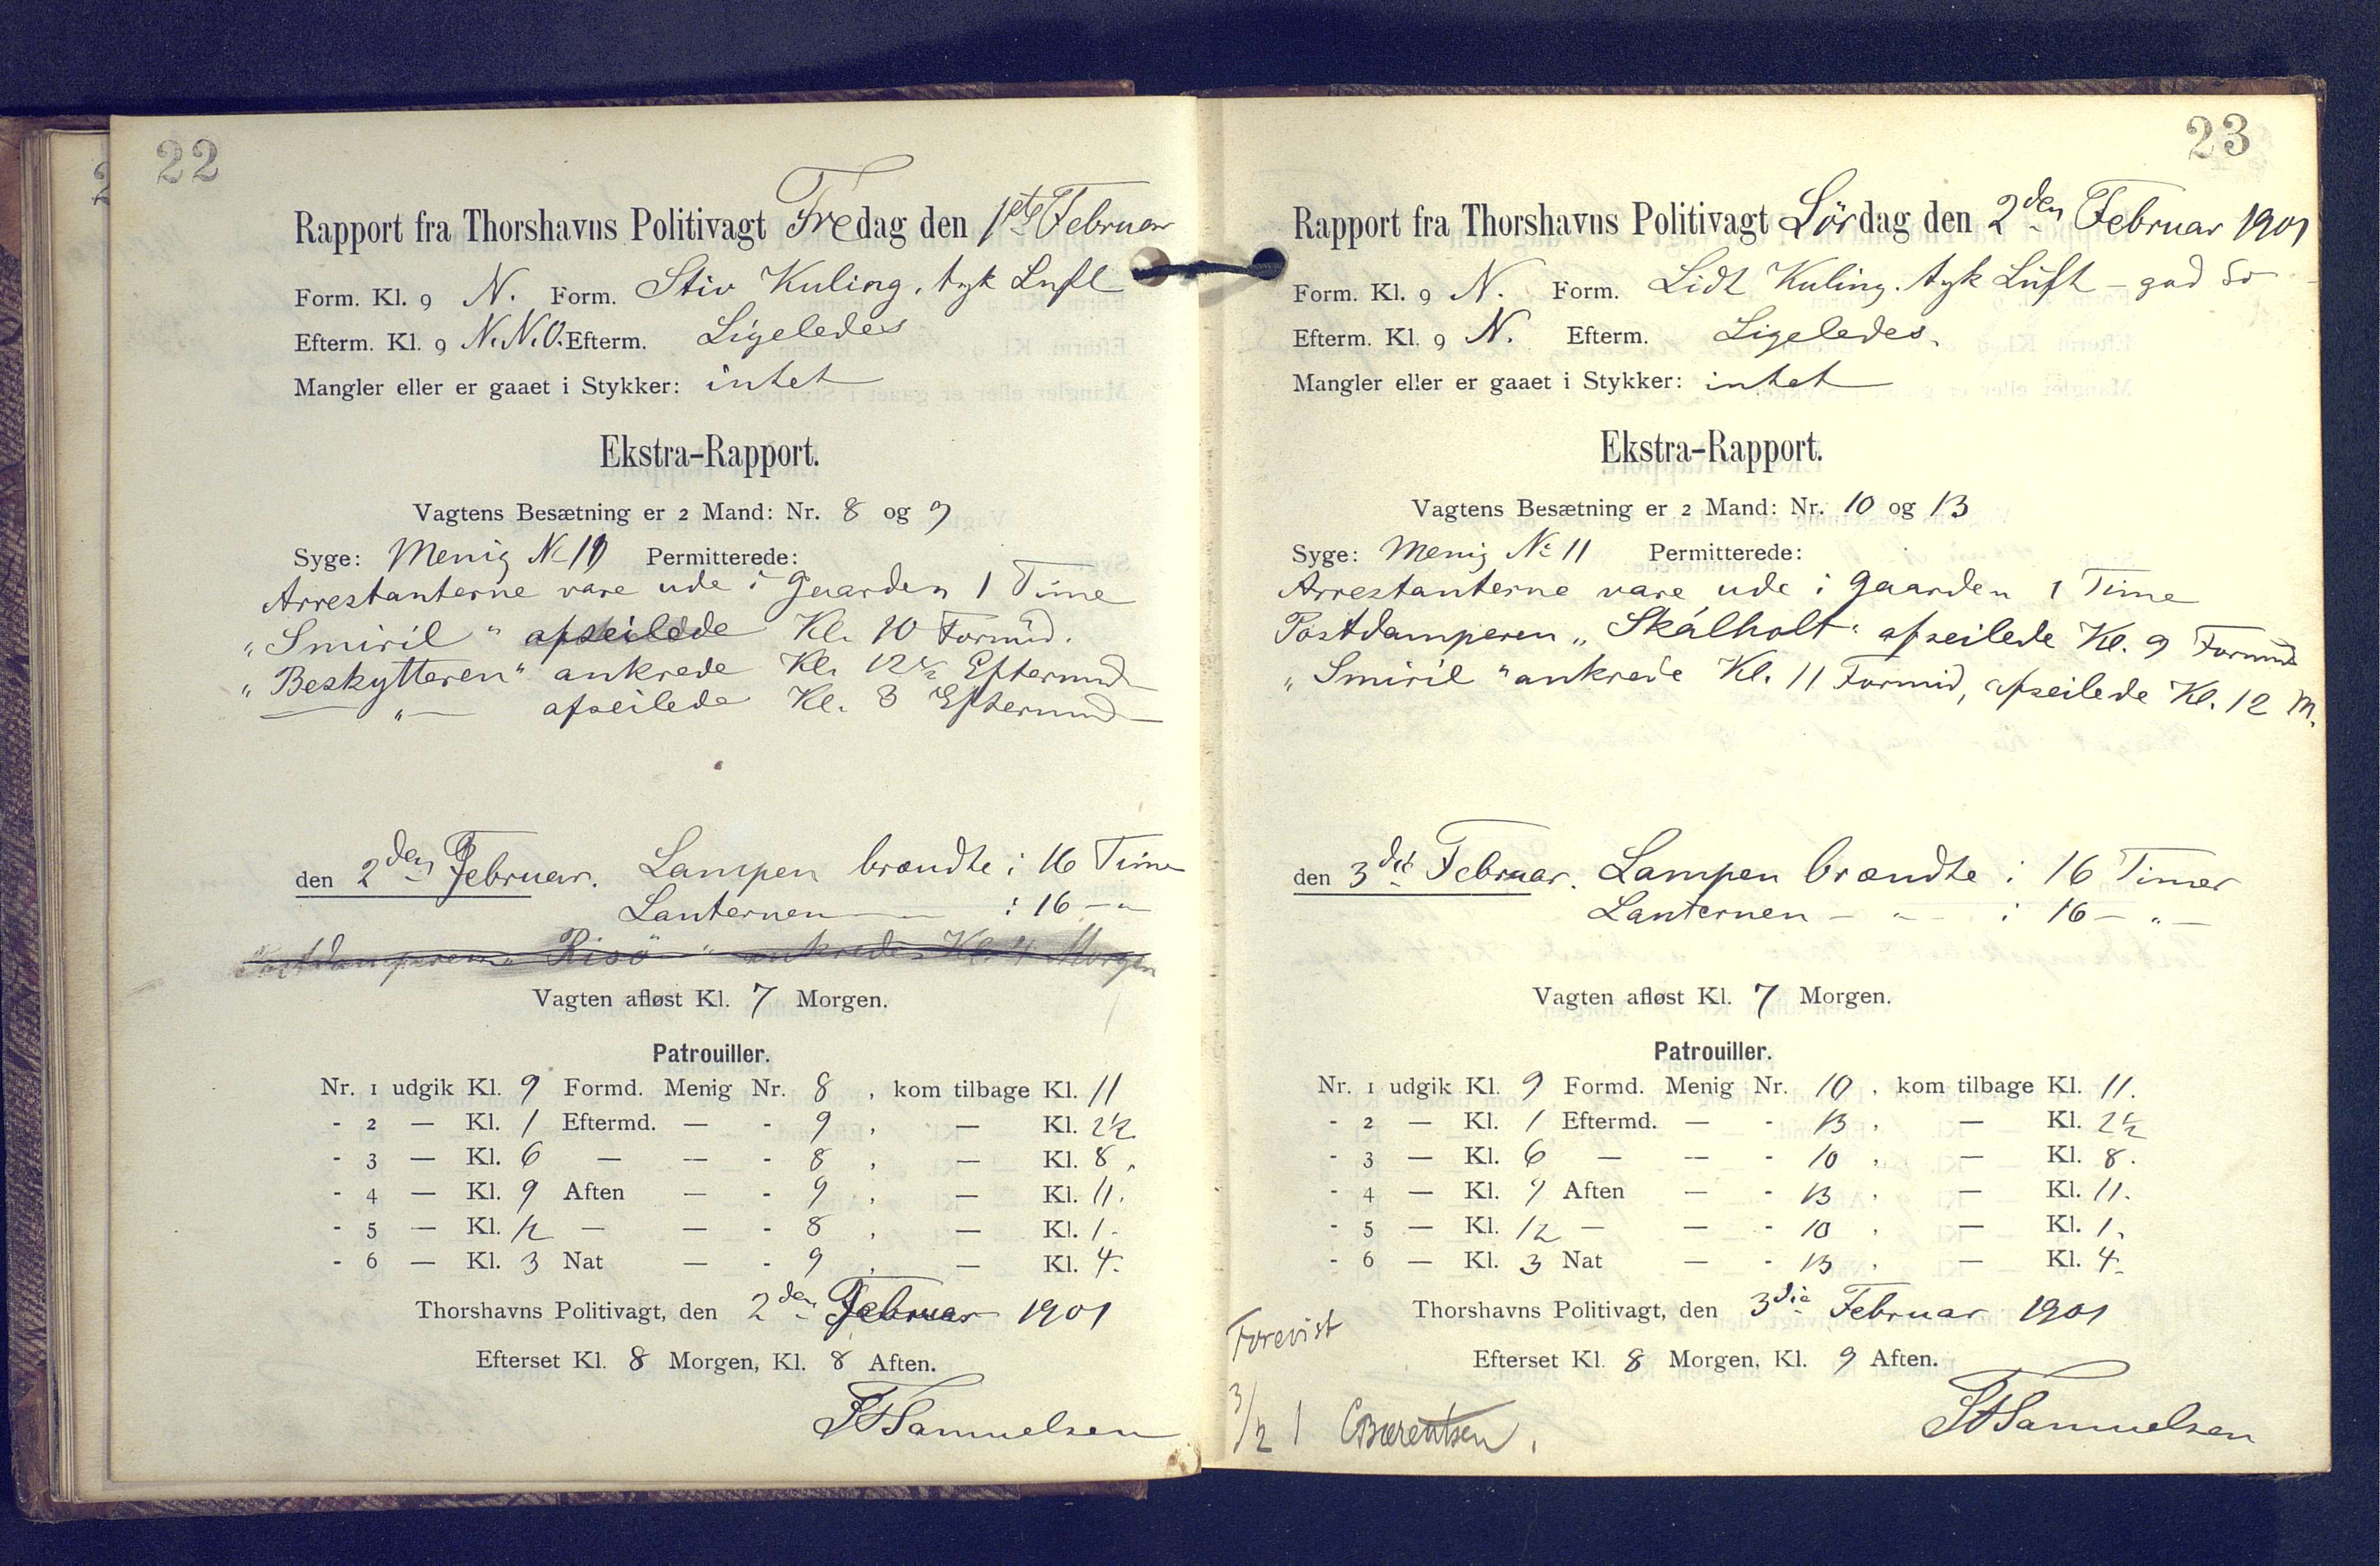 22
Rapport fra Thorshavns Politivagt Fredag den 1ste Februar
Form. Kl. 9 N. Form. Stiv Kuling, tyk Luft
Efterm. Kl. 9 N.N.O. Efterm. Ligeledes
Mangler eller er gaaet i Stykker: intet
Ekstra-Rapport.
Vagtens Besætning er 2 Mand: Nr. 8 og 9
Syge: Menig No 11 Permitterede:
Arrestanterne vare ude i Gaarden 1 Time
„Smiril“ afseilede Kl. 10 Formid.
„Beskytteren“ ankrede Kl. 12½ Eftermid
—„— afseilede Kl. 3 Eftermid
den 2den Februar. Lampen brændte i 16 Time
Lanternen — i 16 —„—
Postdamperen „Risö“ ankrede Kl. 4 Morgen
Vagten afløst Kl. 7 Morgen.
Patrouiller.
Nr. 1 udgik Kl. 9 Formd. Menig Nr. 8, kom tilbage Kl. 11
- 2 — Kl. 1 Eftermd. — - 9, — Kl. 2½
- 3 — Kl. 6 — — - 8, — Kl. 8.
- 4 — Kl. 9 Aften — - 9, — Kl. 11.
- 5 — Kl. 12 — — - 8, — Kl. 1.
- 6 — Kl. 3 Nat — - 9, — Kl. 4.
Thorshavns Politivagt, den 2den Februar 1901
Efterset Kl. 8 Morgen, Kl. 8 Aften.
Samuelsen
23
Rapport fra Thorshavns Politivagt Lördag den 2den Februar 1901
Form. Kl. 9 N. Form. Lidt Kuling. tyk Luft - god So
Efterm. Kl. 9 N. Efterm. Ligeledes.
Mangler eller er gaaet i Stykker: intet
Ekstra-Rapport.
Vagtens Besætning er 2 Mand: Nr. 10 og 13
Syge: Menig No 11 Permitterede:
Arrestanterne vare ude i Gaarden 1 Time
Postdamperen „Skálholt“ afseilede Kl. 9 Formid
„Smiril“ ankrede Kl. 11 Formid, afseilede Kl. 12 M.
den 3die Februar. Lampen brændte i 16 Timer
Lanternen — „ — i 16 — „ —
Vagten afløst Kl. 7 Morgen.
Patrouiller.
Nr. 1 udgik Kl. 9 Formd. Menig Nr. 10, kom tilbage Kl. 11.
- 2 — Kl. 1 Eftermd. — - 13, — Kl. 2½
- 3 — Kl. 6 — — - 10, — Kl. 8.
- 4 — Kl. 9 Aften — - 13, — Kl. 11.
- 5 — Kl. 12 — — - 10, — Kl. 1.
- 6 — Kl. 3 Nat — - 13, — Kl. 4.
Thorshavns Politivagt, den 3die Februar 1901
Efterset Kl. 8 Morgen, Kl. 9 Aften.
Samuelsen
Forevist
3/2 1 CBærentsen.